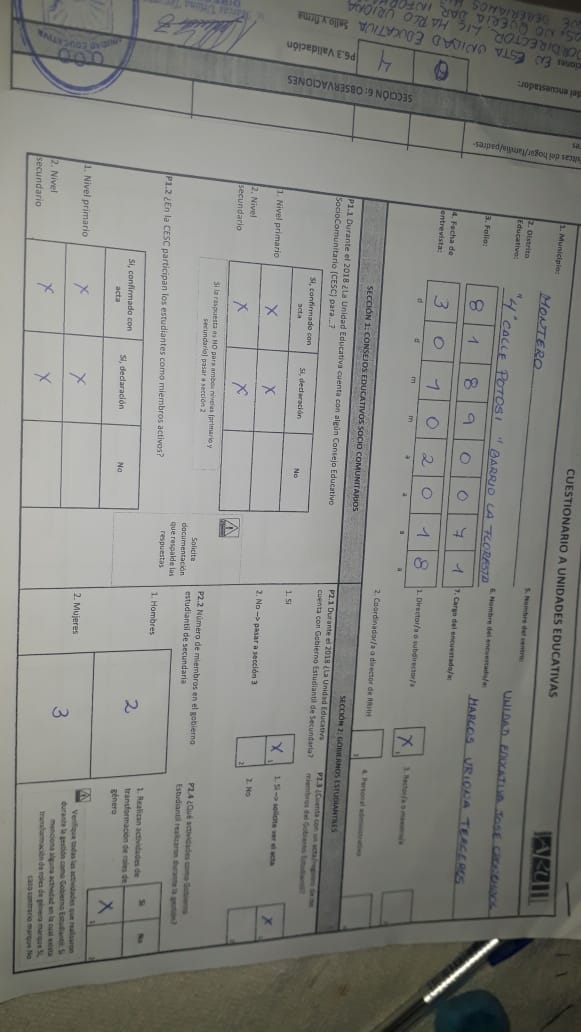 CUESTIONARIO A UNIDADES EDUCATIVAS
1. Municipio: MONTERO
2. Distrito Educativo: "4° CALLE POTOSI" BARRIO LA FLORESTA
3. Folio: 8 1 8 9 0 0 7 1
4. Fecha de entrevista: 3 0 1 0 2 0 1 8
d d m m a a a a
5. Nombre del centro: UNIDAD EDUCATIVA JOSE
6. Nombre del encuestado/a: MARCOS URIONA TERCEROS
7. Cargo del encuestado/a:
1. Director/a o subdirector/a X 1
2. Coordinador/a o director de RRHH
3. Rector/a o maestro/a
4. Personal administrativo
SECCIÓN 1: CONSEJOS EDUCATIVOS SOCIO COMUNITARIOS
P1.1 Durante el 2018 ¿La Unidad Educativa cuenta con algún Consejo Educativo
SocioComunitario (CESC) para...?
Si, confirmado con acta
Si, declaración
No
1. Nivel primario X X
2. Nivel secundario X X
Si la respuesta es NO para ambos niveles (primario y
secundario) pasar a sección 2
Solicite
documentación
que respalde las
respuestas
P1.2 ¿En la CESC participan los estudiantes como miembros activos?
Si, confirmado con acta
Si, declaración
No
1. Nivel primario X X
2. Nivel secundario X X
SECCIÓN 2: GOBIERNOS ESTUDIANTILES
P2.1 Durante el 2018 ¿La Unidad Educativa
cuenta con Gobierno Estudiantil de Secundaria?
1. Si X 1
2. No --> pasar a sección 3 2
P2.2 Número de miembros en el gobierno
estudiantil de secundaria
1. Hombres 2
2. Mujeres 3
miembros del Gobierno Estudiantil?
1. Si --> solicite ver el acta X
2. No
P2.4 ¿Qué actividades como Gobierno
Estudiantil realizaron durante la gestión?
Si No
1. Realizan actividades de
transformación de roles de
género X
Verifique todas las actividades que realizaron
durante la gestión como Gobierno Estudiantil. Si
menciona alguna actividad en la cual exista
transformación de roles de género marque Si,
caso contrario marque No
SECCIÓN 6: OBSERVACIONES
P6.3 Validación
Sello y firma
del encuestador:
EN ESTA UNIDAD EDUCATIVA
DIRECTOR, LIC. MARCO URIONA
NO QUERIA DAR
UNIDAD EDUCATIVA